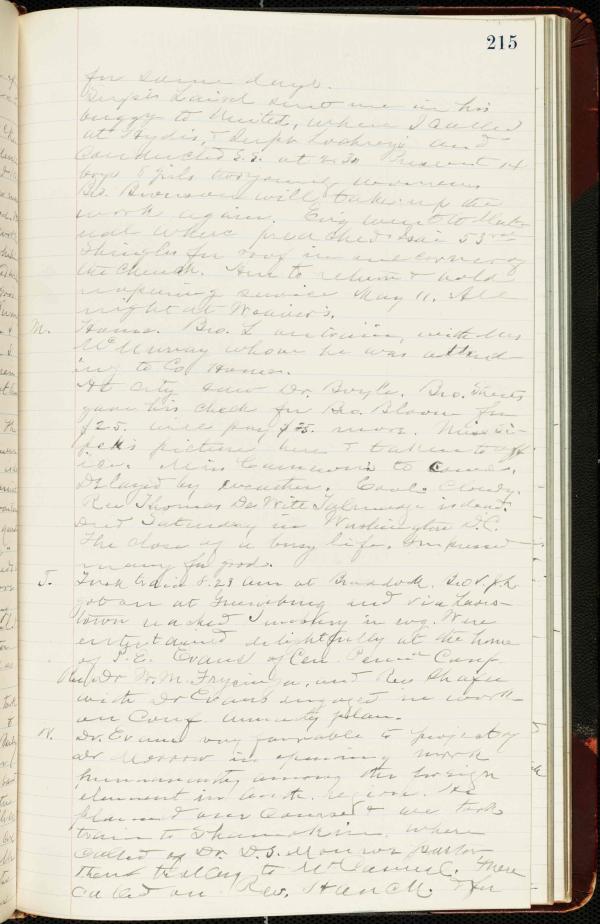 215
for some days.
Supt's Laird sent me in his
buggy to United, where I called
at Hydis, & Supt and
Conducted S.S. at 2:30 Present 14
boys 8 girls two young womens
Bro. Bronson will take up the
work again. Eng went to
where preached Isai 53rd
Shingles for roof in one corner of
the Church. Am to return & hold
reopening service May 11. All
night at Weaver's.
M. Home. Bro. L on train, with Mrs
McMurray whom he was attend
ing to Co. Home.
At City saw Dr. Boyle. Bro.
gave his check for Bro. Bloom for
$25. will pay $25. more. Miss
picture here & taken to off
ice. Miss to come.
Delayed by weather. Cool. Cloudy.
Rev Thomas De Witt Talmadge is dead.
Died Saturday in Washington D.C.
The close of a busy life. Impressed
many for good.
T. Took train 8.29 am at Braddock. Geo V. Jr
got on at Greensburg and via Lewis-
town reached Sunbury in evg. Were
entertained delightfully at the home
of S. E. Evans of Cen. Penn Conf.
Rev Dr W. M. Frysinger, and Rev Shafer
with Dr Evans engaged in work
on Conf annuity plan.
W. Dr. Evans very favorable to project of
Dr Morrow in opening work
among the foreign
element in Anth. region. He
planned our Course & we took
train to Shamokin. where
Called of Dr. D.S. Monroe pastor
then trolley to McCarmel. There
called on Rev. Hanck. Then